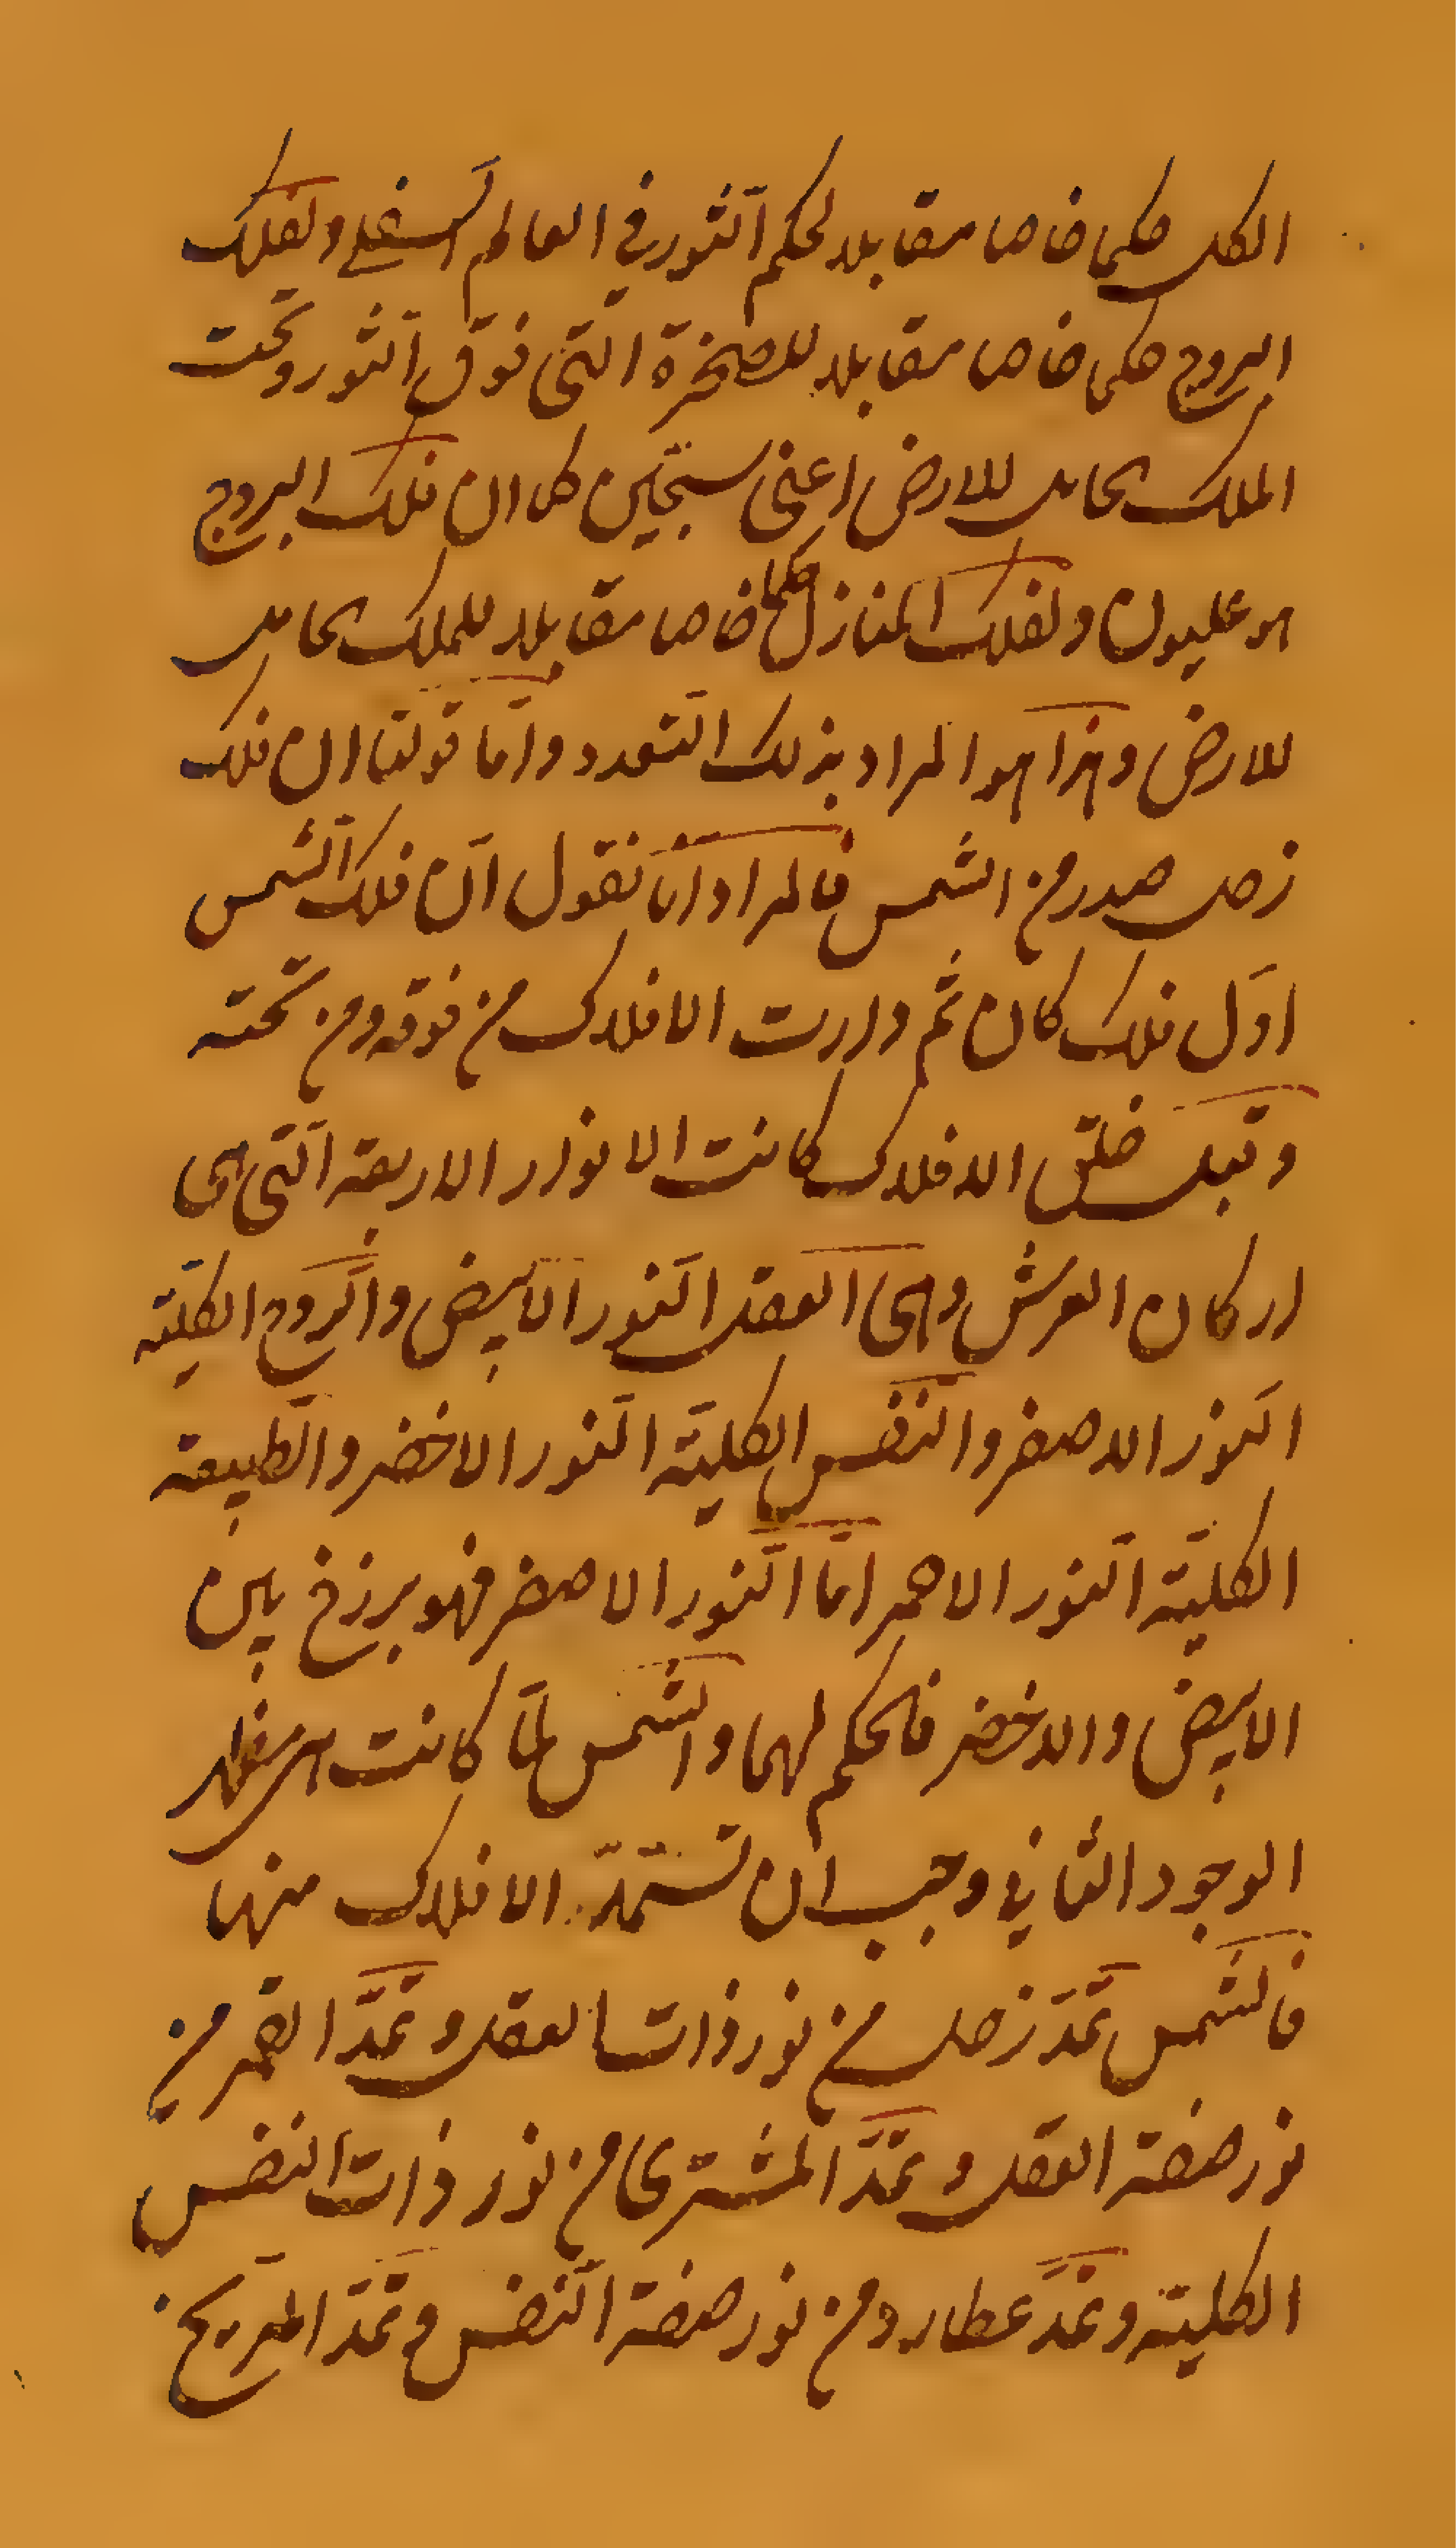 الكل حكما خاصا مقابلا لحكم الثور في العالم السفلي ولفلك
البروج حكما خاصا مقابلا للصخرة التي فوق الثور وتحت
الملك الحامل للارض اعني سجين كما ان فلك البروج
هو عليون ولفلك المنازل حكما خاصا مقابلا للملك الحامل
للارض وهذا هو المراد بذلك التعدد وامّا قولنا ان فلك
زحل صدر من الشمس فالمراد انّا نقول انّ فلك الشمس
اوّل فلك كان ثم دارت الافلاك من فوقه ومن تحته
وقبل خلق الافلاك كانت الانوار الاربعة الّتي هي
اركان العرش وهي العقل النّور الابيض والرّوح الكليّة
النّور الاصفر والنّفس الكليّة النّور الاخضر والطّبيعة
الكليّة النّور الاحمر امّا النّور الاصفر فهو برزخ بين
الابيض والاخضر فالحكم لهما والشّمس لمّا كانت هي مظهر
الوجود الثاني وجب ان تستمدّ الافلاك منها
فالشّمس تمدّ زحل من نور ذات العقل وتمدّ القمر من
نور صفة العقل وتمدّ المشتري من نور ذات النفس
الكلية وتمدّ عطارد من نور صفة النّفس وتمدّ المرّيخ